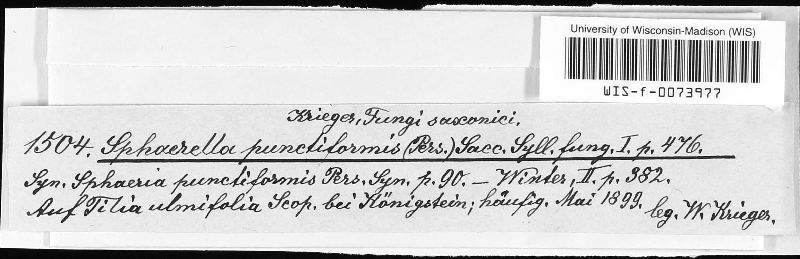 University of Wisconsin-Madison (WIS)
WIS-f-0073977
Krieger, Fungi saxonici.
1504. Sphaerella punctiformis (Pers.) Sacc. Syll. fung. I. p. 476.
Syn. Sphaeria punctiformis Pers. Syn. p. 90. — Winter, II. p. 382.
Auf Tilia ulmifolia Scop. bei Königstein; häufig. Mai 1899. leg. W. Krieger.